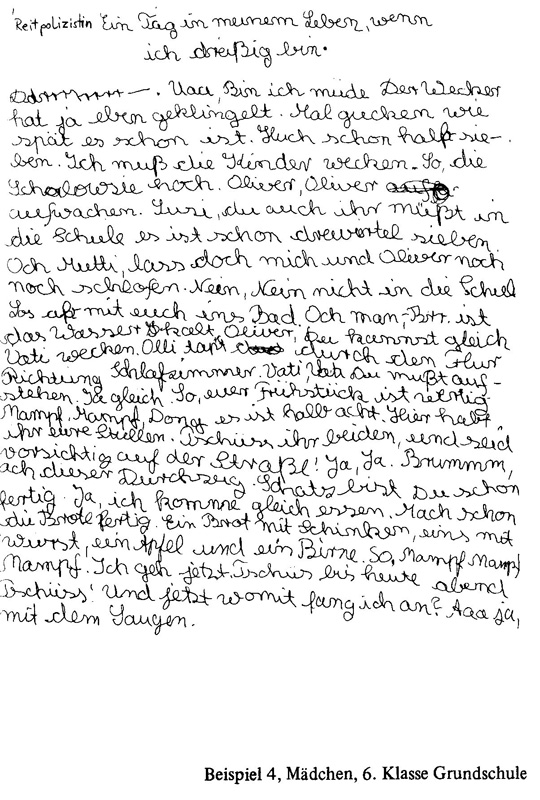 Reitpolizistin Ein Tag in meinem Leben, wenn
ich dreißig bin.
Ddrrrrrrrr. Uaa, Bin ich müde Der Wecker
hat ja eben geklingelt. Mal gucken wie
spät es schon ist. Huch schon halb sie-
ben. Ich muß die Kinder wecken. So, die
Schalowsie hoch. Oliver, Oliver
aufwachen. Susi, du auch ihr müßt in
die Schule es ist schon dreivertel sieben
Och Mutti, lass doch mich und Oliver noch
noch schlafen. Nein, Nein nicht in die Schul
Los ab mit euch ins Bad. Och man, Brr. ist
das Wasser kalt. Oliver, Du kannst gleich
Vati wecken. Olli durch den Flur
Richtung Schlafzimmer. Vati, Vati Du mußt auf-
stehen. Ja gleich. So, euer Frühstück ist fertig.
Mampf, Mampf, Dong es ist halb acht. Hier habt
ihr eure Stullen. Tschüss ihr beiden, und seid
vorsichtig auf der Straße! Ja, Ja. Brummm,
ach dieser Durchzug. Schatz bist Du schon
fertig. Ja, ich komme gleich essen. Mach schon
die Brote fertig. Ein Brot mit Schinken, eins mit
Wurst, ein Apfel und ein Birne. So, Mampf Mampf
Mampf. Ich geh jetzt. Tschüs bis heute abend
Tschüss! Und jetzt womit fang ich an? Aaa ja,
mit dem Saugen.
Beispiel 4, Mädchen, 6. Klasse Grundschule